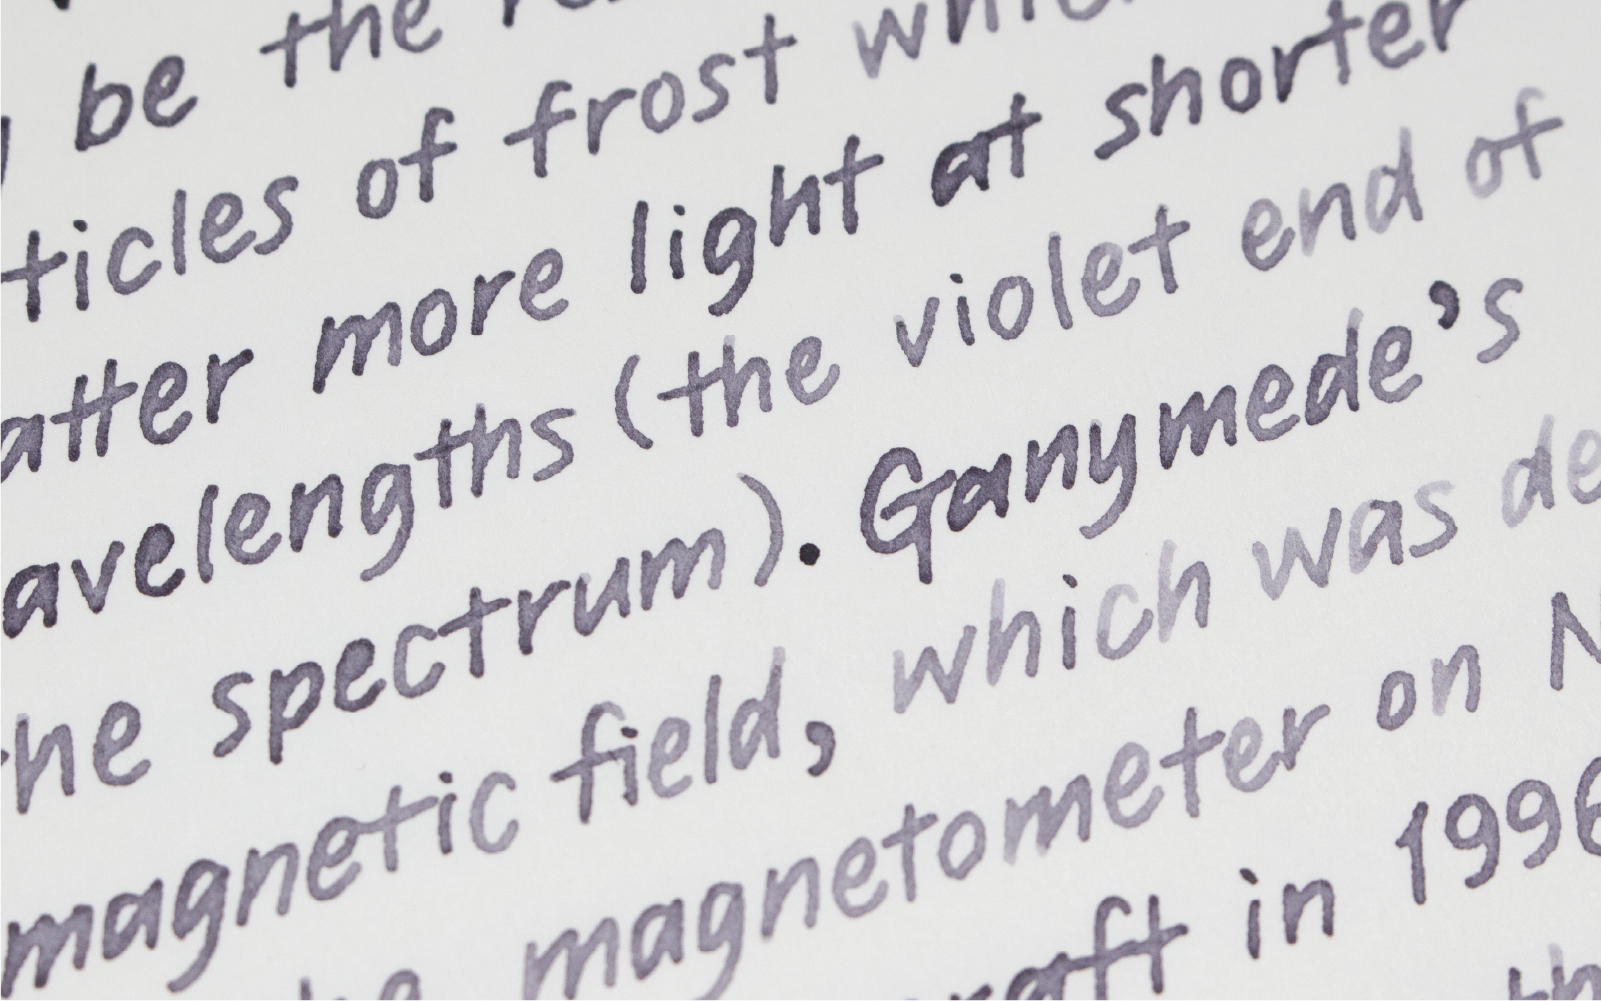 be the
ticles of frost
atter more light at shorter
avelengths (the violet end of
he spectrum). Ganymede's
magnetic field, which was de
magnetometer on N
raft in 1996
th